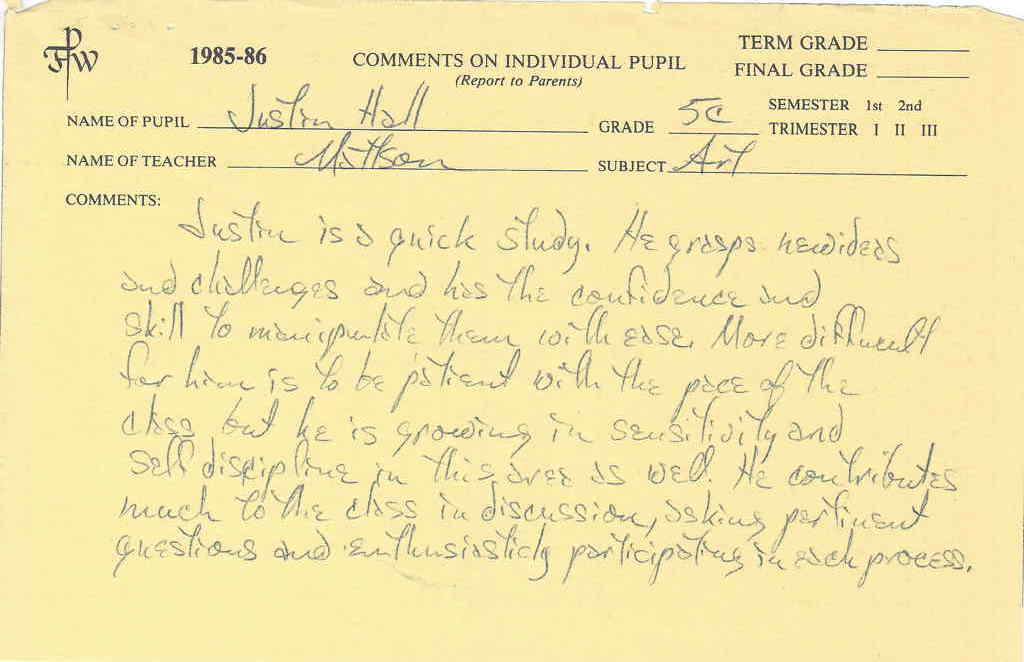 FPW
1985-86
COMMENTS ON INDIVIDUAL PUPIL
(Report to Parents)
TERM GRADE
FINAL GRADE
NAME OF PUPIL Justin Hall GRADE 5C SEMESTER 1st 2nd
TRIMESTER I II III
NAME OF TEACHER Mattson SUBJECT Art
COMMENTS:
Justin is a quick study. He grasps new ideas
and challenges and has the confidence and
skill to manipulate them with ease. More difficult
for him is to be patient with the pace of the
class but he is growing in sensitivity and
self discipline in this area as well. He contributes
much to the class in discussion, asking pertinent
questions and enthusiasticly participating in each process.